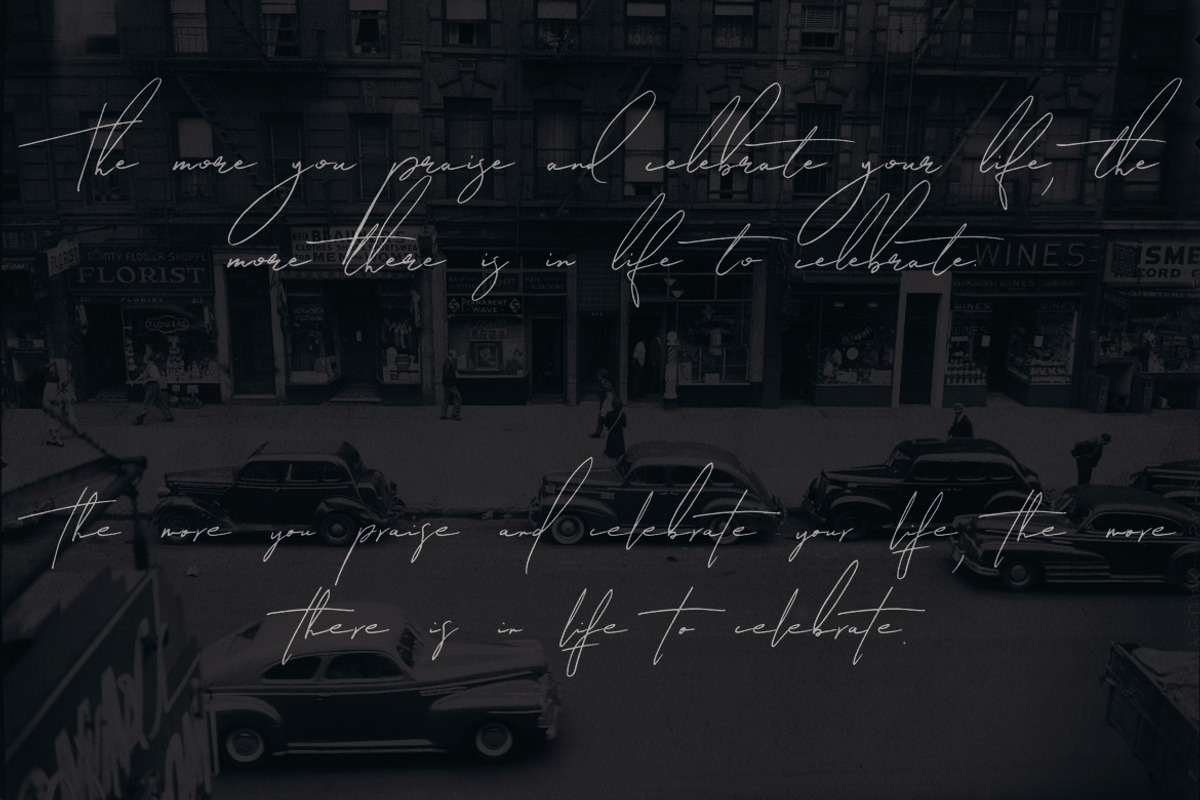 The more you praise and celebrate your life, the
more there is in life to celebrate.
FLORIST
WINES
PERMANENT
WAVE
The more you praise and celebrate your life, the more
there is in life to celebrate.